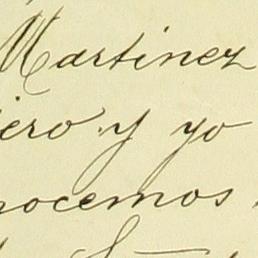 Martinez
iero y yo
nocemos